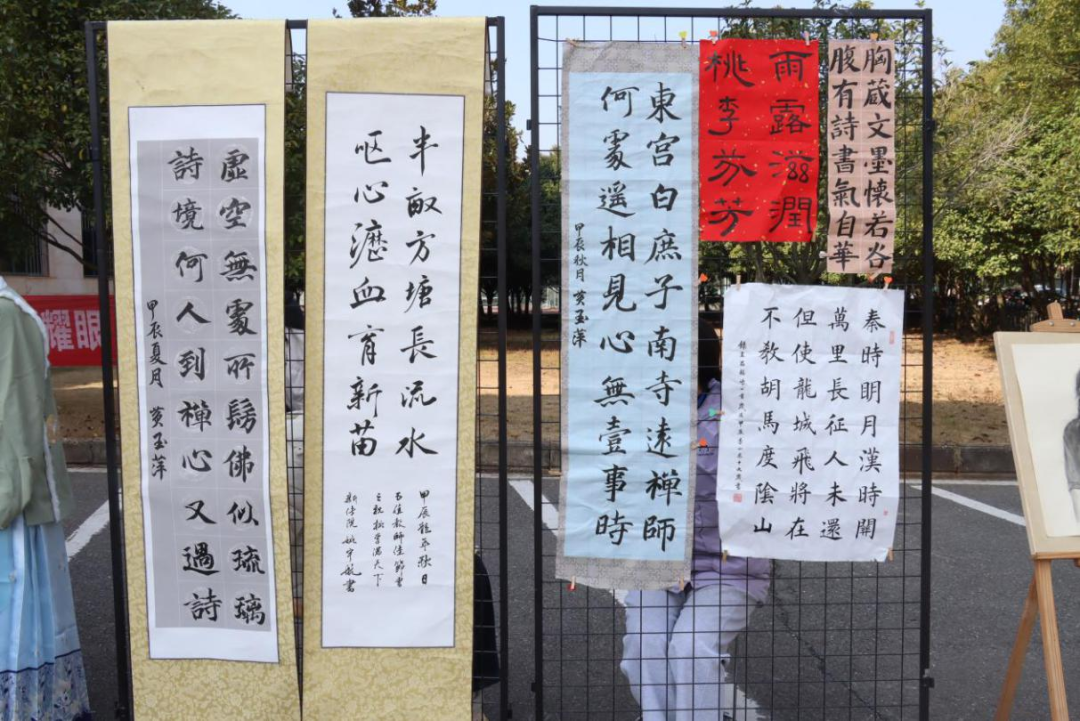 虛空無處所髣佛似琉璃
詩境何人到禪心又過詩
甲辰夏月 黄玉萍
半畝方塘長流水
呕心瀝血育新苗
甲辰龍年秋日
教師佳節書
祝桃李滿天下
東宮白庶子南寺遠禪師
何處遥相見心無壹事時
甲辰秋月 黄玉萍
雨露滋潤
桃李芬芳
胸蔵文墨懷若谷
腹有詩書氣自華
秦時明月漢時開
萬里長征人未還
但使龍城飛將在
不教胡馬度隂山
耀眼